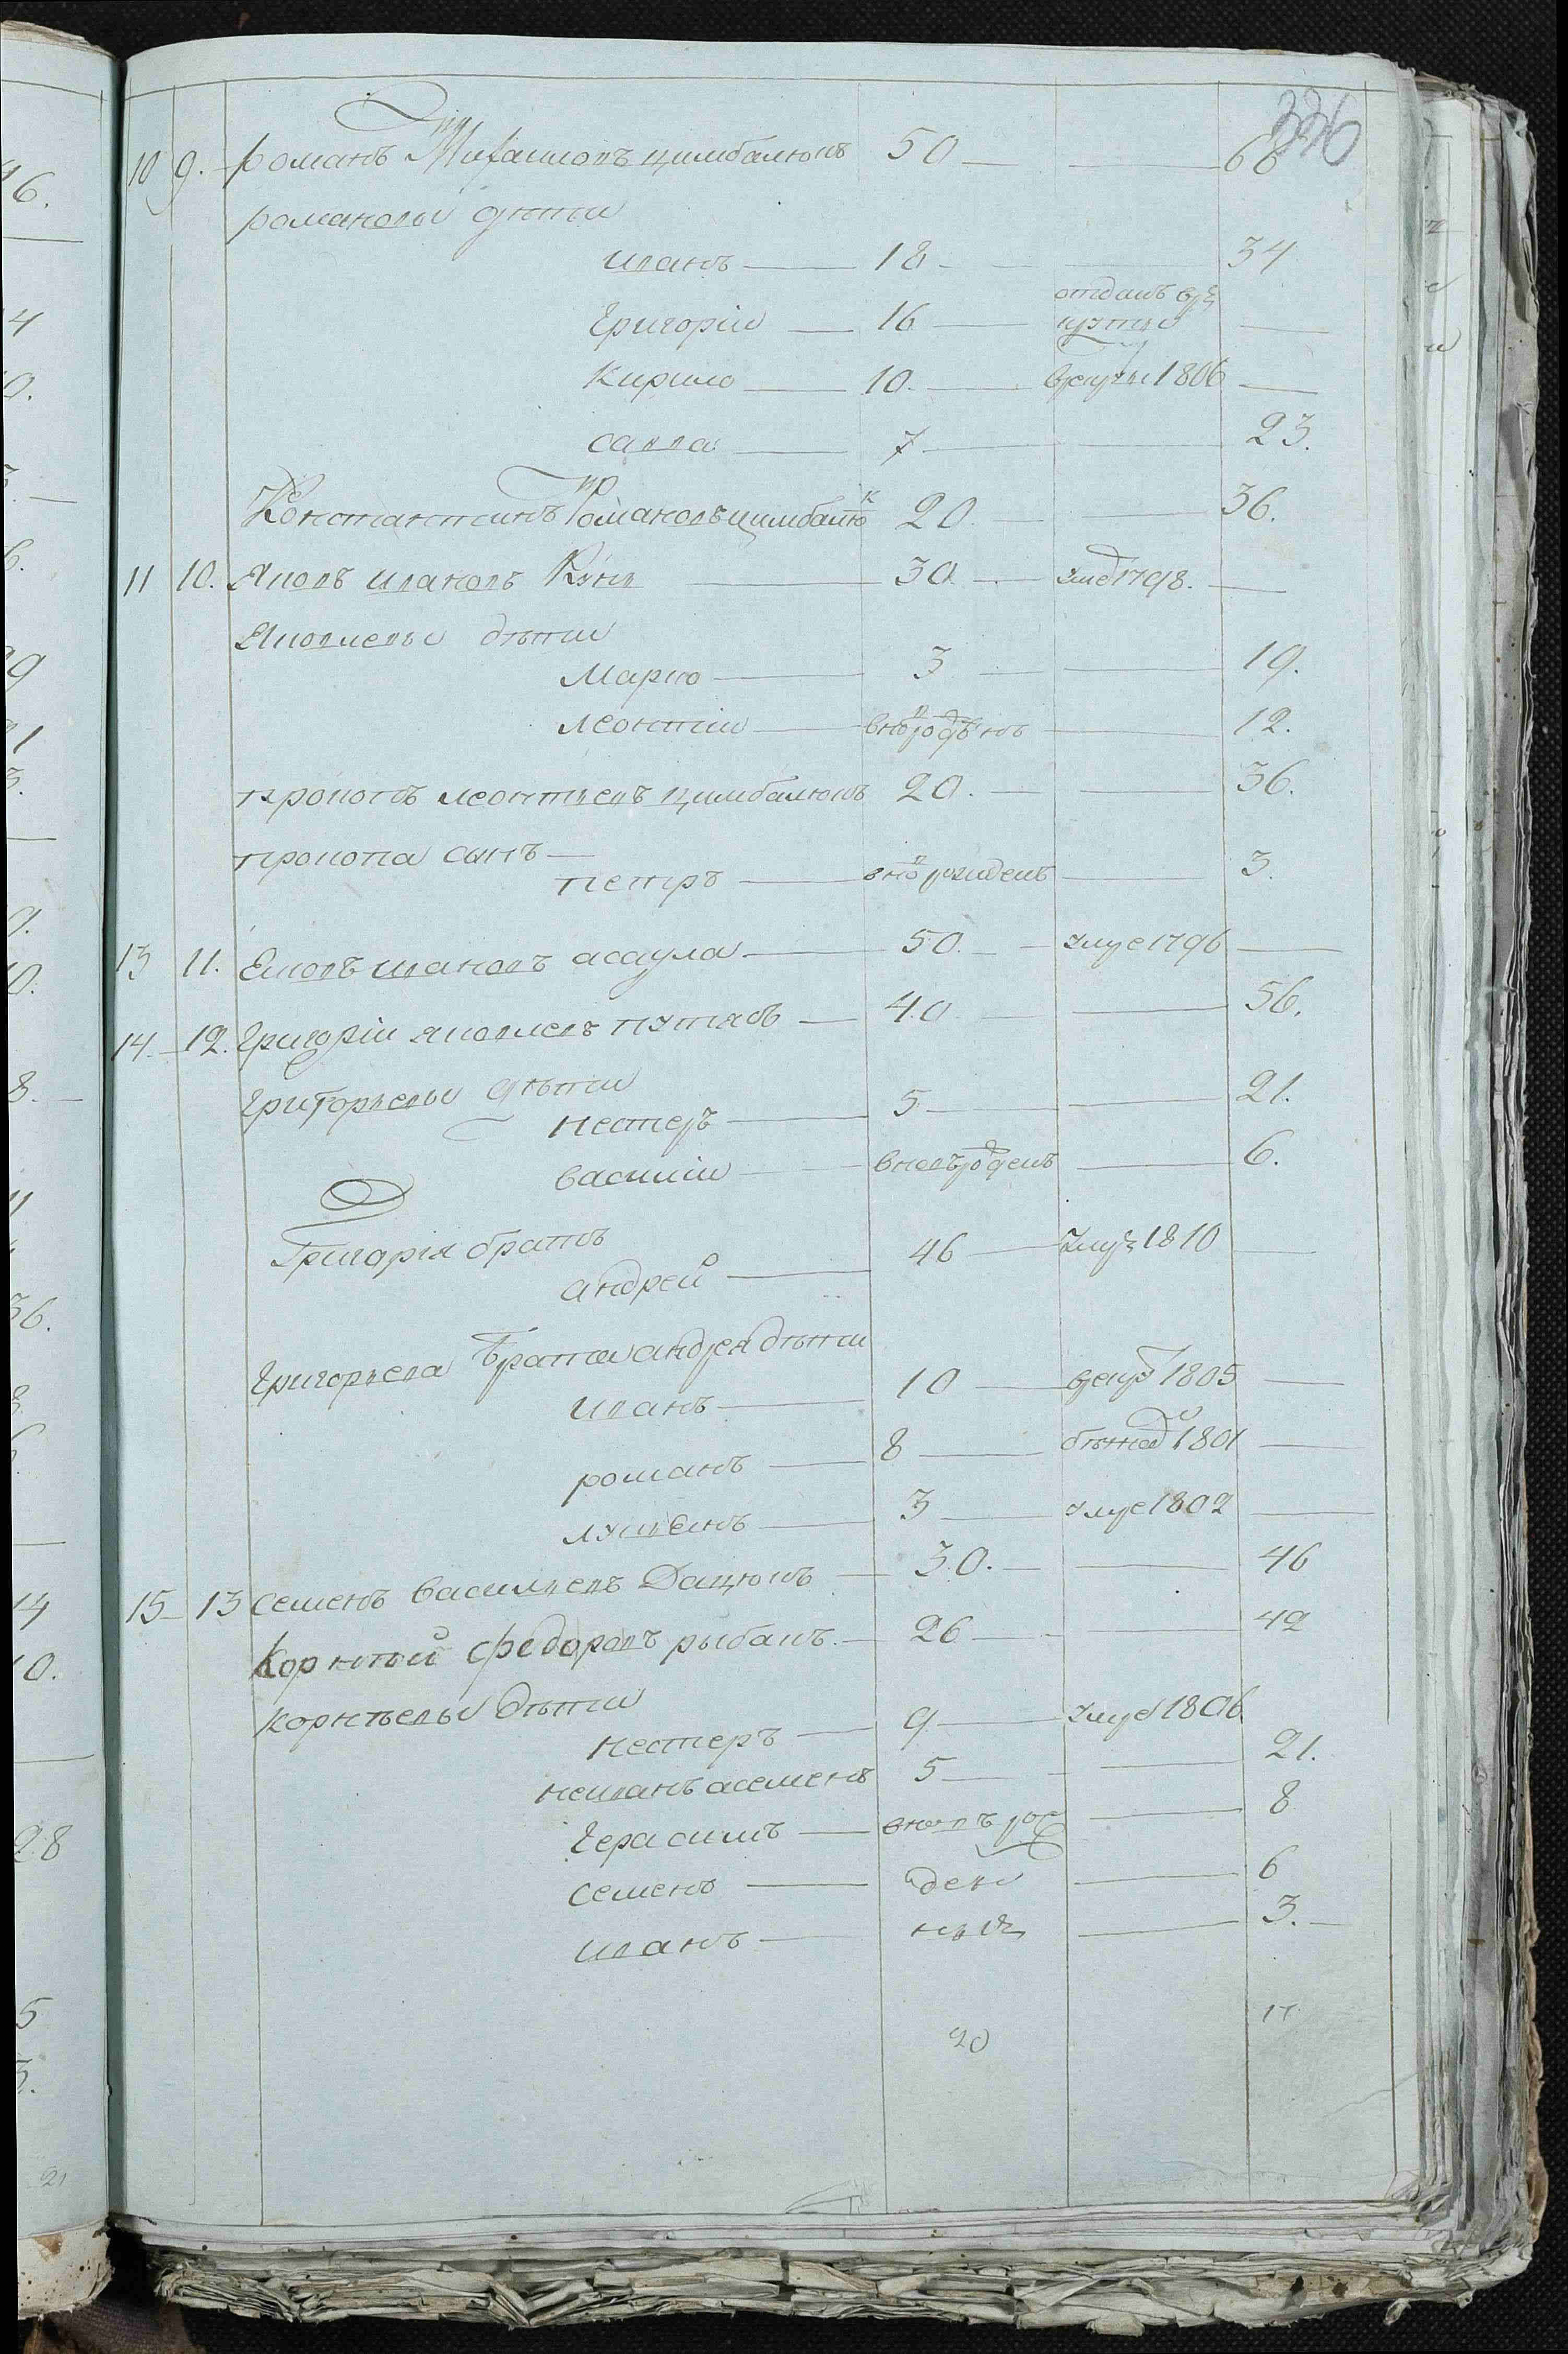 336
10 9. романъ Михаиловъ цимбалюкъ 50 — — 66
романовы дѣти
иванъ — 18 — — 34
Григорій — 16 — отданъ въ рекруты —
Кирило — 10. — врекруты 1806 —
савва — 7 — — 23.
Константинъ Романовъ цимбалюк 20. — — 36.
11 10. Яковъ ивановъ Кунъ — 30. — умер 1798. —
Яковлевы дѣти
Марко — 3 — — 19.
леонтій — вновь рожденъ — 12.
прокопъ леонтьевъ цимбалюкъ 20. — — 36.
прокопа сынъ —
петръ — вновь рожденъ — 3.
13 11. Яковъ ивановъ асаула — 50. — умре 1796 —
14. 12. Григорій яковлевъ — 40. — — 56.
Григорьевы дѣти
нестеръ — 5 — — 21.
василій — вновь рожденъ — 6.
Григорія братъ
андрей — 46 — умре 1810 —
Григорьева брата андрея дѣти
иванъ — 10 — врекру 1805 —
романъ — 8 — бѣжалъ 1801 —
— 3 — умре 1802 —
15 13 семенъ васильевъ Дацюкъ — 30. — — 46
Корнѣй федоровъ рыбакъ. — 26 — — 42
корнѣевы дѣти
нестеръ — 9 — умре 1806
неиванъ асеменъ 5 — — 21.
Герасимъ — вновь рож — 8
семенъ — дены — 6
иванъ — — 3. —
20 17